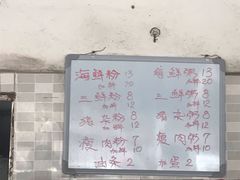 海鲜粉 13 海鲜粥 13
加料 20 加料 20
三鲜粉 8 三鲜粥 8
加料 12 加料 12
猪杂粉 8 猪杂粥 8
加料 12 加料 12
瘦肉粉 7 瘦肉粥 7
加料 10 加料 10
油条 2 加蛋 2